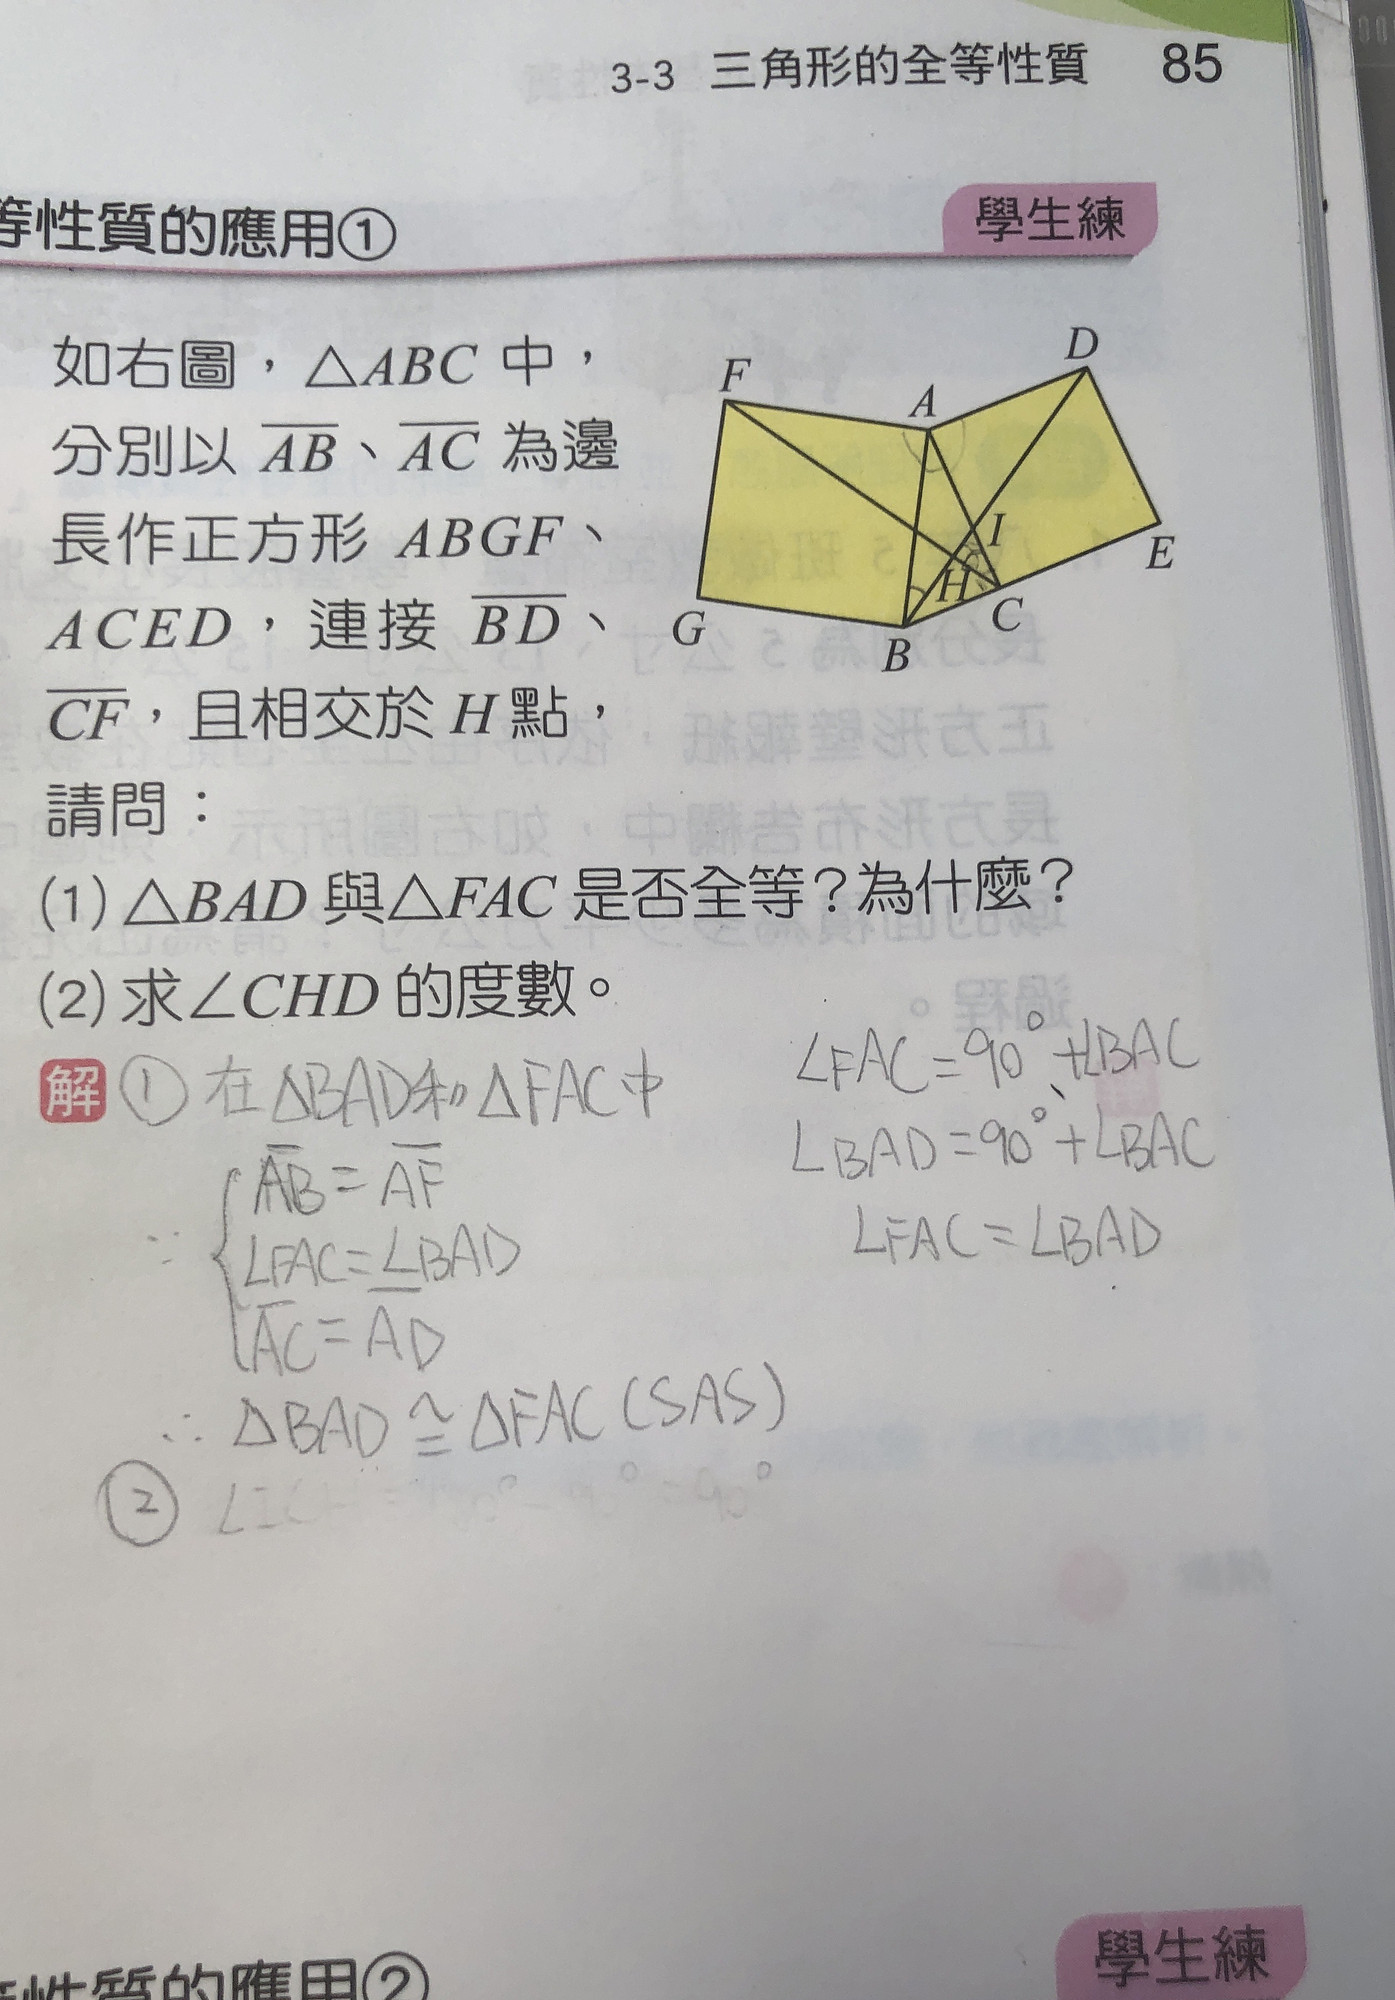 3-3 三角形的全等性質 85
等性質的應用①
學生練
如右圖，△ABC 中，
分別以 AB、AC 為邊
長作正方形 ABGF、
ACED，連接 BD、
CF，且相交於 H 點，
請問：
F
A
D
I
E
H
C
G
B
(1) △BAD 與△FAC 是否全等？為什麼？
(2) 求∠CHD 的度數。
解 ① 在△BAD和△FAC中
∵ AB = AF
∠FAC = ∠BAD
AC = AD
∴ △BAD ≅ △FAC (SAS)
∠FAC = 90° + ∠BAC
∠BAD = 90° + ∠BAC
∠FAC = ∠BAD
②
性質的應用②
學生練